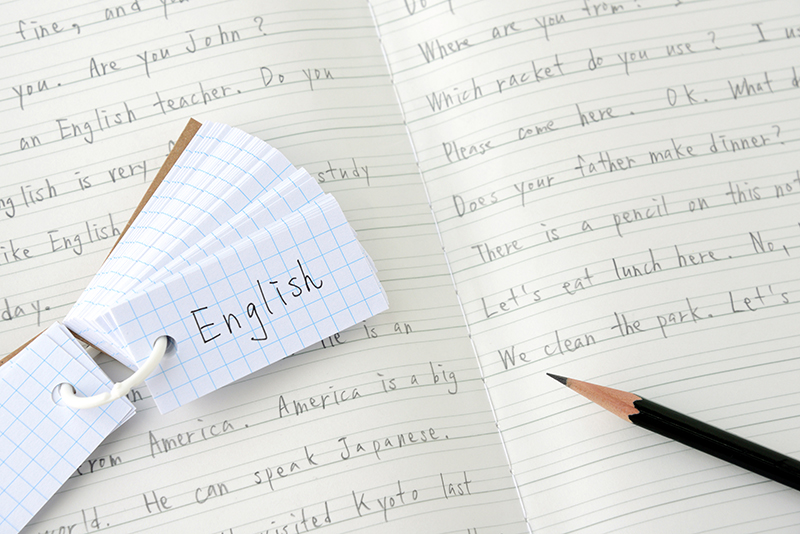 fine, and
you. Are you John?
an English teacher. Do you
English is very
study
like English
day.
is an
from America. America is a big
world. He can speak Japanese.
visited Kyoto last
English
Where are you from?
Which racket do you use? I
Please come here. OK. What
Does your father make dinner?
There is a pencil on this
Let's eat lunch here. No,
We clean the park. Let's